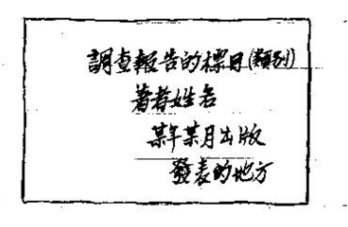 調查報告的標目(類別)
著者姓名
某年某月出版
發表的地方